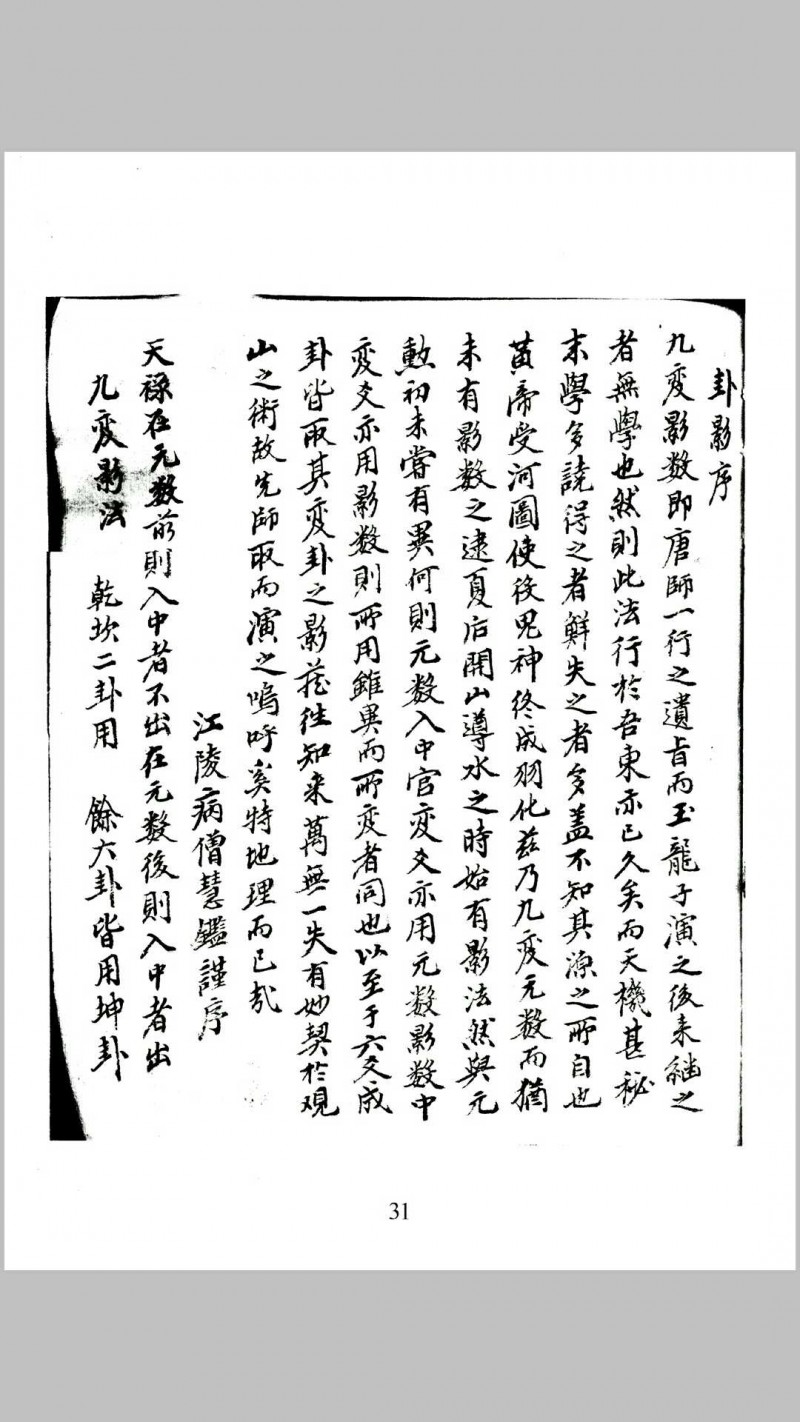 卦影序
九変影数即唐師一行之遺旨而玉龍子演之後来継之
者無學也然則此法行於吾東亦已久矣而天機甚秘
末學多説得之者鮮失之者多盖不知其源之所自也
黄帝受河圖使役鬼神終成羽化兹乃九変元数而猶
未有影数之逮夏后開山導水之時始有影法然與元
数初未嘗有異何則元数入中宮変爻亦用元数影数中
変爻亦用影数則所用雖異而所変者同也以至于六爻成
卦皆取其変卦之影蔵徃知来萬無一失有妙契於觀
山之術故先師取而演之嗚呼奚特地理而已㢤
江陵病僧慧鑑謹序
天祿在元数前則入中者不出在元数後則入中者出
九変影法 乾坎二卦用 餘六卦皆用坤卦
31